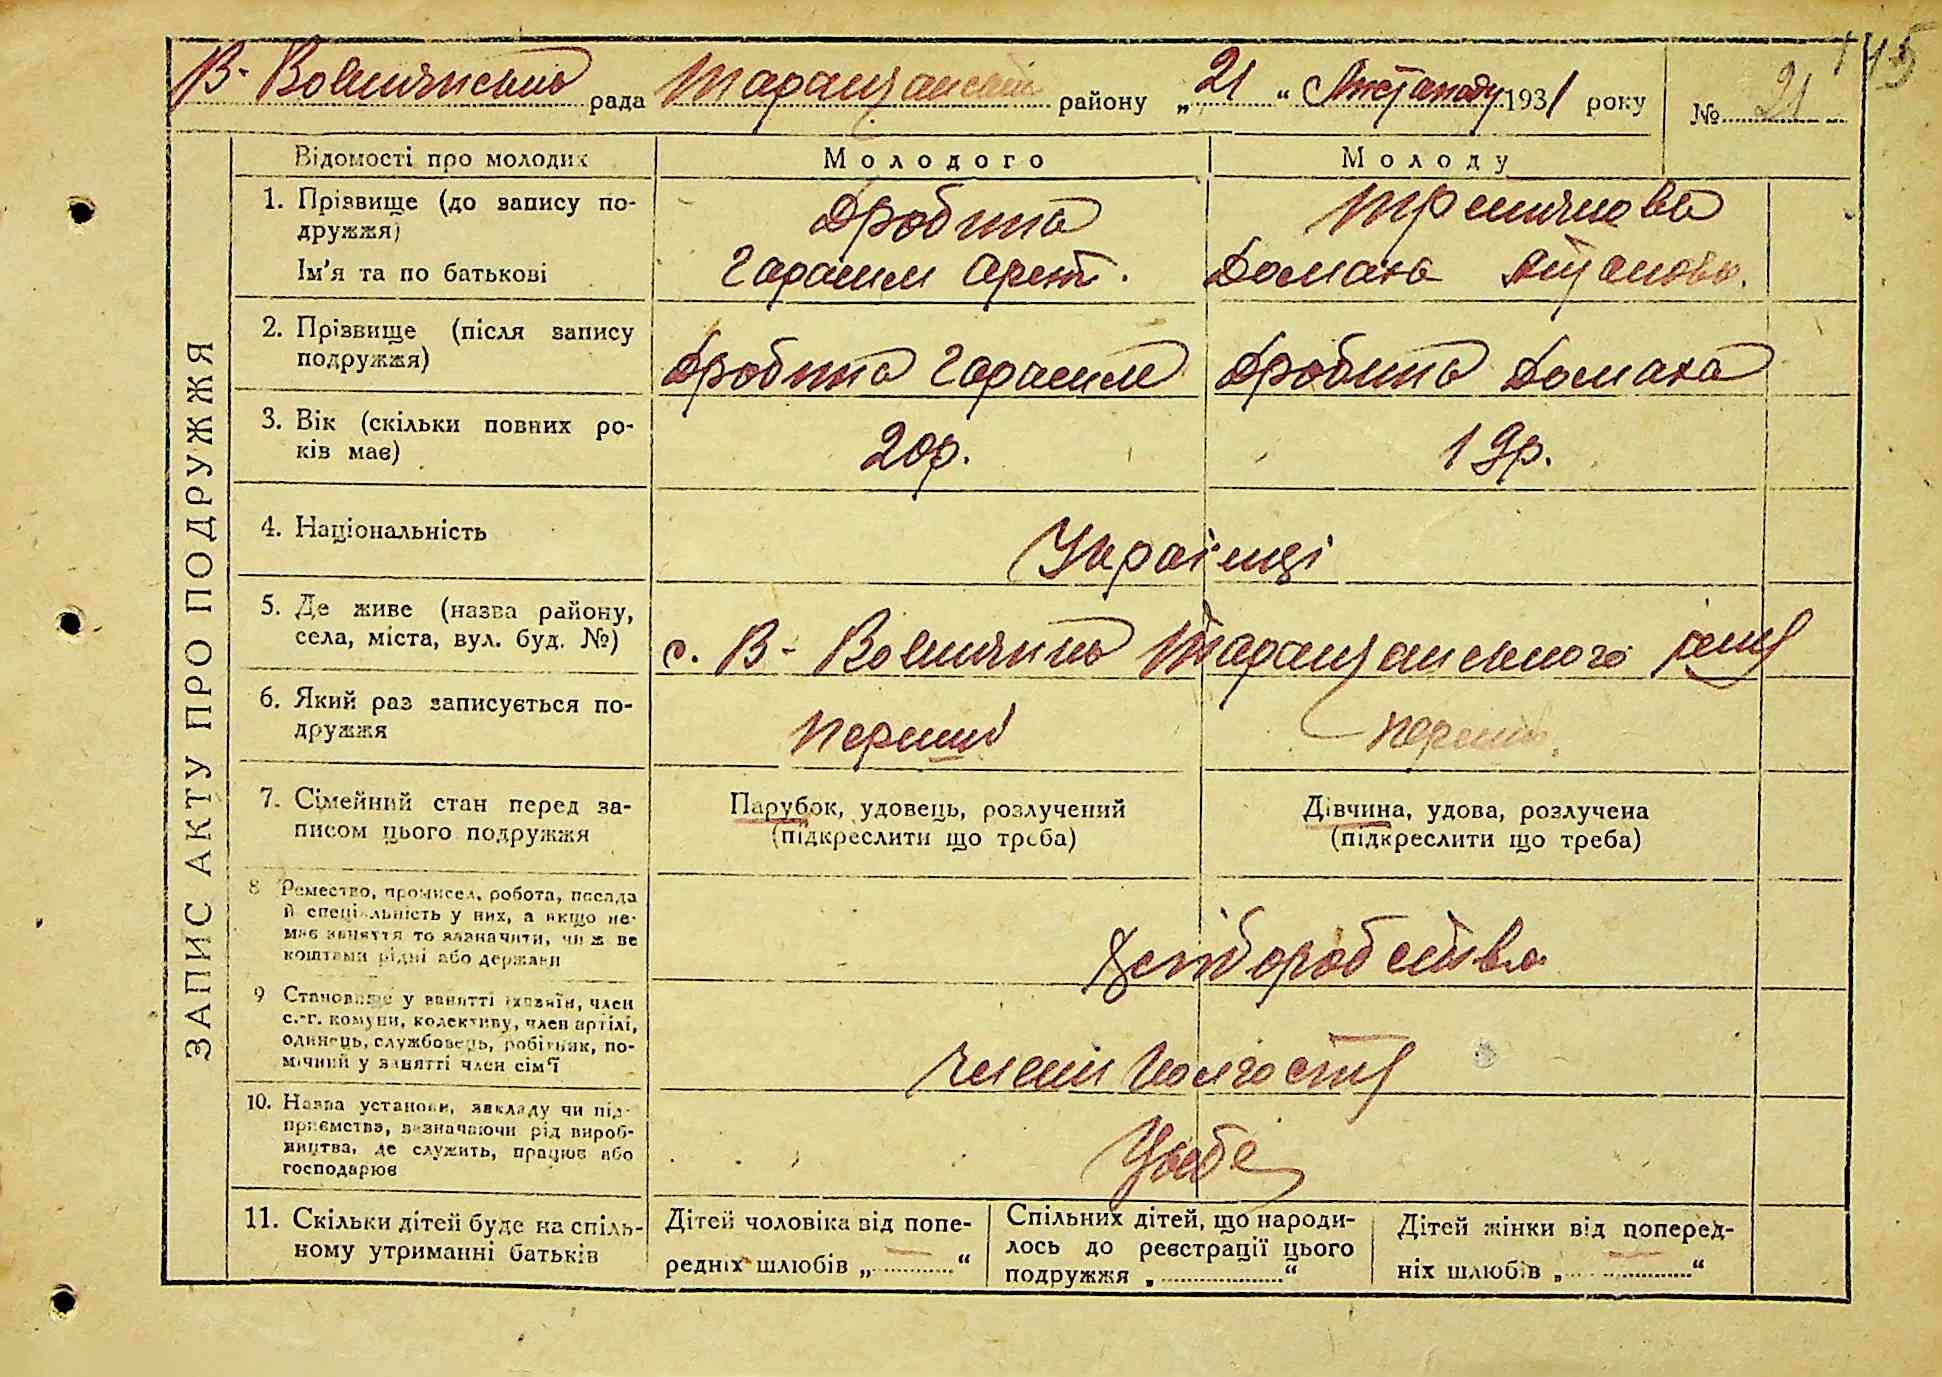 145
В-Вовнянська рада Таращанськ. району „21“ Листопаду 1931 року № 21
ЗАПИС АКТУ ПРО ПОДРУЖЖЯ
Відомості про молодих Молодого Молоду
1. Прізвище (до запису по-
дружжя)
Дробита
Ім'я та по батькові
Гарасим Домаха
2. Прізвище (після запису
подружжя)
Дробита Гарасим Дробита Домаха
3. Вік (скільки повних ро-
ків має)
20р. 19р.
4. Національність
Українці
5. Де живе (назва району,
села, міста, вул. буд. №)
с. В-Вовнянка Таращанського
6. Який раз записується по-
дружжя
перший перший
7. Сімейний стан перед за-
писом цього подружжя
Парубок, удовець, розлучений
(підкреслити що треба)
Дівчина, удова, розлучена
(підкреслити що треба)
8 Ремество, промисел, робота, посада
й спеціяльність у них, а якщо не-
має заняття то зазначити, чиж ве
коштами рідні або держави
Хліборобства
9 Становище у занятті їхазяїн, член
с.-г. комуни, колективу, член артілі,
одинець, службовець, робітник, по-
мічний у занятті член сім'ї
члени
10. Назва установи, закладу чи під-
приємства, зазначаючи рід вироб-
ництва, де служить, працює або
господарює
У себе
11. Скільки дітей буде на спіль-
ному утриманні батьків
Дітей чоловіка від попе-
редніх шлюбів „ — “
Спільних дітей, що народи-
лось до реєстрації цього
подружжя „ “
Дітей жінки від поперед-
ніх шлюбів „ — “